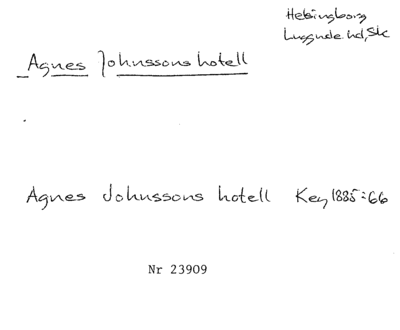 Helsingborg
Luggude hd, Sk
Agnes Johnssons hotell
Agnes Johnssons hotell Key 1885:66
Nr 23909